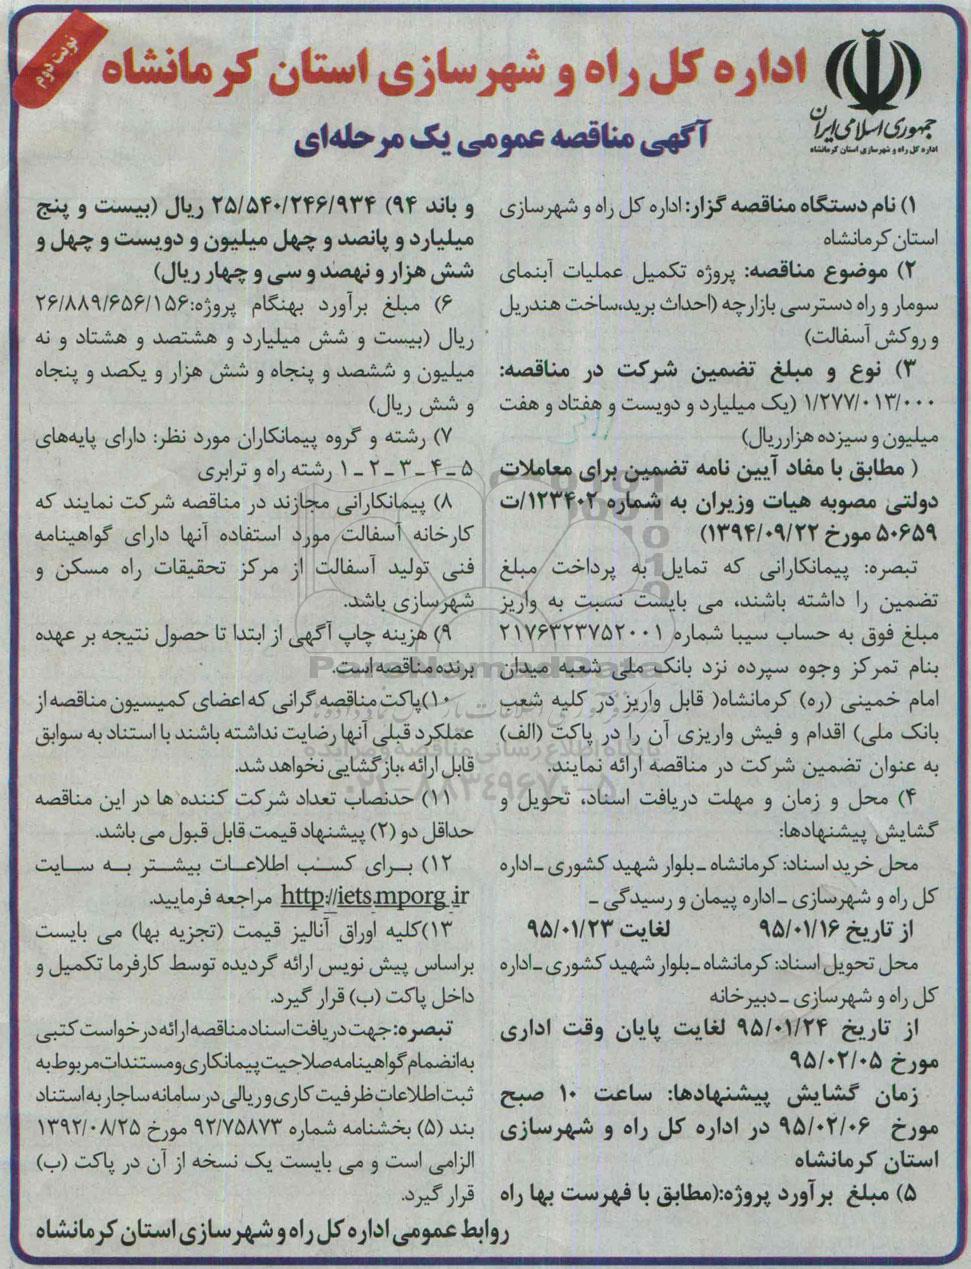 نوبت دوم
جمهوری اسلامی ایران
اداره کل راه و شهرسازی استان کرمانشاه
اداره کل راه و شهرسازی استان کرمانشاه
آگهی مناقصه عمومی یک مرحله‌ای
۱) نام دستگاه مناقصه گزار: اداره کل راه و شهرسازی
استان کرمانشاه
۲) موضوع مناقصه: پروژه تکمیل عملیات آبنمای
سومار و راه دسترسی بازارچه (احداث برید،ساخت هندریل
و روکش آسفالت)
۳) نوع و مبلغ تضمین شرکت در مناقصه:
۱/۲۷۷/۰۱۳/۰۰۰ (یک میلیارد و دویست و هفتاد و هفت
میلیون و سیزده هزارریال)
( مطابق با مفاد آیین نامه تضمین برای معاملات
دولتی مصوبه هیات وزیران به شماره ۱۲۳۴۰۲/ت
۵۰۶۵۹ مورخ ۱۳۹۴/۰۹/۲۲)
تبصره: پیمانکارانی که تمایل به پرداخت مبلغ
تضمین را داشته باشند، می بایست نسبت به واریز
مبلغ فوق به حساب سیبا شماره ۲۱۷۶۳۲۳۷۵۲۰۰۱
بنام تمرکز وجوه سپرده نزد بانک ملی شعبه میدان
امام خمینی (ره) کرمانشاه( قابل واریز در کلیه شعب
بانک ملی) اقدام و فیش واریزی آن را در پاکت (الف)
به عنوان تضمین شرکت در مناقصه ارائه نمایند.
۴) محل و زمان و مهلت دریافت اسناد، تحویل و
گشایش پیشنهادها:
محل خرید اسناد: کرمانشاه ـ بلوار شهید کشوری ـ اداره
کل راه و شهرسازی ـ اداره پیمان و رسیدگی ـ
از تاریخ ۹۵/۰۱/۱۶ لغایت ۹۵/۰۱/۲۳
محل تحویل اسناد: کرمانشاه ـ بلوار شهید کشوری ـ اداره
کل راه و شهرسازی ـ دبیرخانه
از تاریخ ۹۵/۰۱/۲۴ لغایت پایان وقت اداری
مورخ ۹۵/۰۲/۰۵
زمان گشایش پیشنهادها: ساعت ۱۰ صبح
مورخ ۹۵/۰۲/۰۶ در اداره کل راه و شهرسازی
استان کرمانشاه
۵) مبلغ برآورد پروژه:(مطابق با فهرست بها راه
و باند ۹۴) ۲۵/۵۴۰/۲۴۶/۹۳۴ ریال (بیست و پنج
میلیارد و پانصد و چهل میلیون و دویست و چهل و
شش هزار و نهصد و سی و چهار ریال)
۶) مبلغ برآورد بهنگام پروژه:۲۶/۸۸۹/۶۵۶/۱۵۶
ریال (بیست و شش میلیارد و هشتصد و هشتاد و نه
میلیون و ششصد و پنجاه و شش هزار و یکصد و پنجاه
و شش ریال)
۷) رشته و گروه پیمانکاران مورد نظر: دارای پایه‌های
۵ ـ ۴ ـ ۳ ـ ۲ ـ ۱ رشته راه و ترابری
۸) پیمانکارانی مجازند در مناقصه شرکت نمایند که
کارخانه آسفالت مورد استفاده آنها دارای گواهینامه
فنی تولید آسفالت از مرکز تحقیقات راه مسکن و
شهرسازی باشد.
۹) هزینه چاپ آگهی از ابتدا تا حصول نتیجه بر عهده
برنده مناقصه است.
۱۰)پاکت مناقصه گرانی که اعضای کمیسیون مناقصه از
عملکرد قبلی آنها رضایت نداشته باشند با استناد به سوابق
قابل ارائه ،بازگشایی نخواهد شد.
۱۱) حدنصاب تعداد شرکت کننده ها در این مناقصه
حداقل دو (۲) پیشنهاد قیمت قابل قبول می باشد.
۱۲) برای کسب اطلاعات بیشتر به سایت
http://iets.mporg.ir مراجعه فرمایید.
۱۳)کلیه اوراق آنالیز قیمت (تجزیه بها) می بایست
براساس پیش نویس ارائه گردیده توسط کارفرما تکمیل و
داخل پاکت (ب) قرار گیرد.
تبصره:جهت دریافت اسناد مناقصه ارائه درخواست کتبی
به انضمام گواهینامه صلاحیت پیمانکاری و مستندات مربوط به
ثبت اطلاعات ظرفیت کاری و ریالی در سامانه ساجار به استناد
بند (۵) بخشنامه شماره ۹۲/۷۵۸۷۳ مورخ ۱۳۹۲/۰۸/۲۵
الزامی است و می بایست یک نسخه از آن در پاکت (ب)
قرار گیرد.
روابط عمومی اداره کل راه و شهرسازی استان کرمانشاه
ParsNamadData
پایگاه اطلاع رسانی مناقصه و مزایده
۰۲۱-۸۸۳۴۹۶۷۰-۵